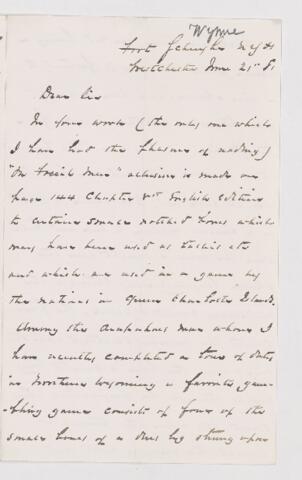 Wynne
Fort Schuyler N.Y. H
Westchester June 21st 81
Dear Sir
In your work (the only one which
I have had the pleasure of reading)
"On Fossil Men" allusion is made on
page 144 Chapter English edition
to certain small notched bones which
may have been used as tallies etc
and which are used in a game by
the natives in Queen Charlotte Islands.
Among the Arapahoes near whom I
have recently completed a tour of duty
in Northern Wyoming a favorite gam-
-bling game consists of four of the
small bones of a leg strung upon